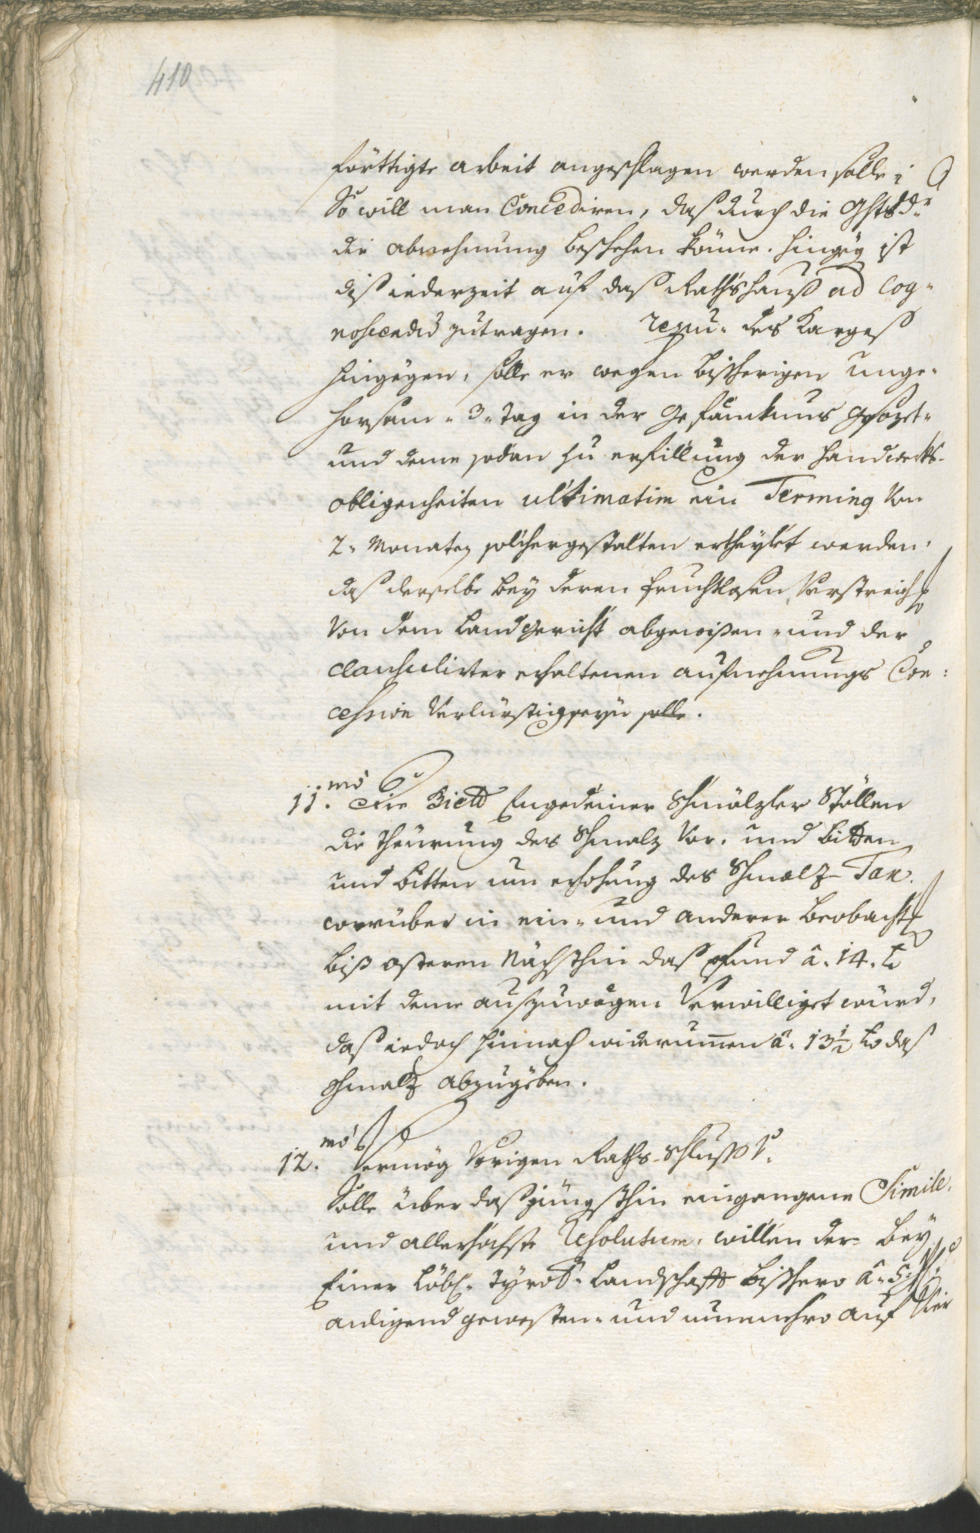 410
förttigte arbeit angeschlagen werden solle;
So will man Concediren, daß durch die
die abnehmung beschehen könne. hingög ist
diß iederzeit auf daß Rathshauß ad Cog-
noscendũ zutragen. des Karges
hingögen, solle er wegen bißherigen unge-
horsam - 3 - Tag in der Gefäncknus gesözt-
und deme sodan zu erfillung der handwerkhs-
obligenheiten ultimatim ein Terming von
2. Monaten solchergestalten ertheillet werden,
daß derselbe bey deren fruchtlosen Verstreich
von dem Landgericht abgewißen - und der
clausulirter erhaltenen aufnehmungs Con-
cession Verlürstig seyn solle.
11.mo Die Engedeiner Schmölzler Stöllen
die theurung des Schmalz vor. und bitten
und bitten um erhohung des Schmalz-Tax.
worüber in ein- und anderer beobacht
biß osteren nächsthin daß Pfund â. 14. xr
mit deme außzuwögen Verwilliget würd,
daß iedoch hinnach widerumen â. 13½ xr daß
schmalz abzugöben.
12.mo Vermög Vorigen Raths-Schluß
Solle über daß jüngsthin eingangene Simile.
und allerhöchste Resolution, willen der bey
Einer Löbl. Tyrol. Landschafft bißhero â. 5.
anligend gewesten - und nunmehro auf